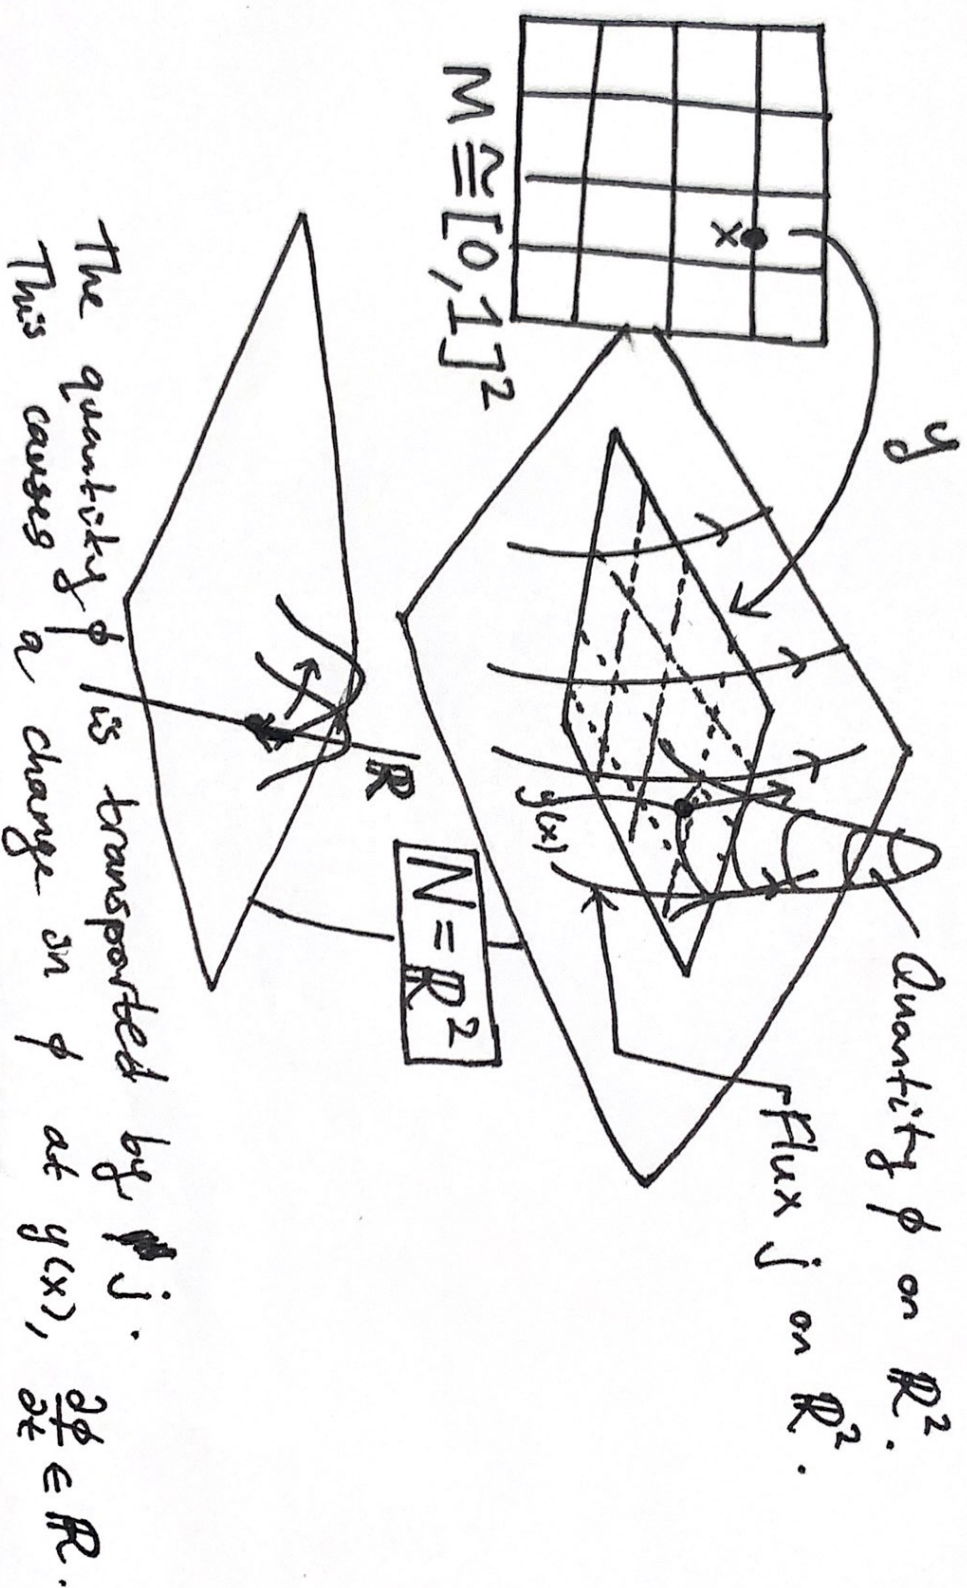 y
x
M ≅ [0,1]²
Quantity ϕ on ℝ².
Flux j on ℝ².
y(x)
N = ℝ²
ℝ
The quantity ϕ is transported by j.
This causes a change in ϕ at y(x), ∂ϕ/∂t ∈ ℝ.